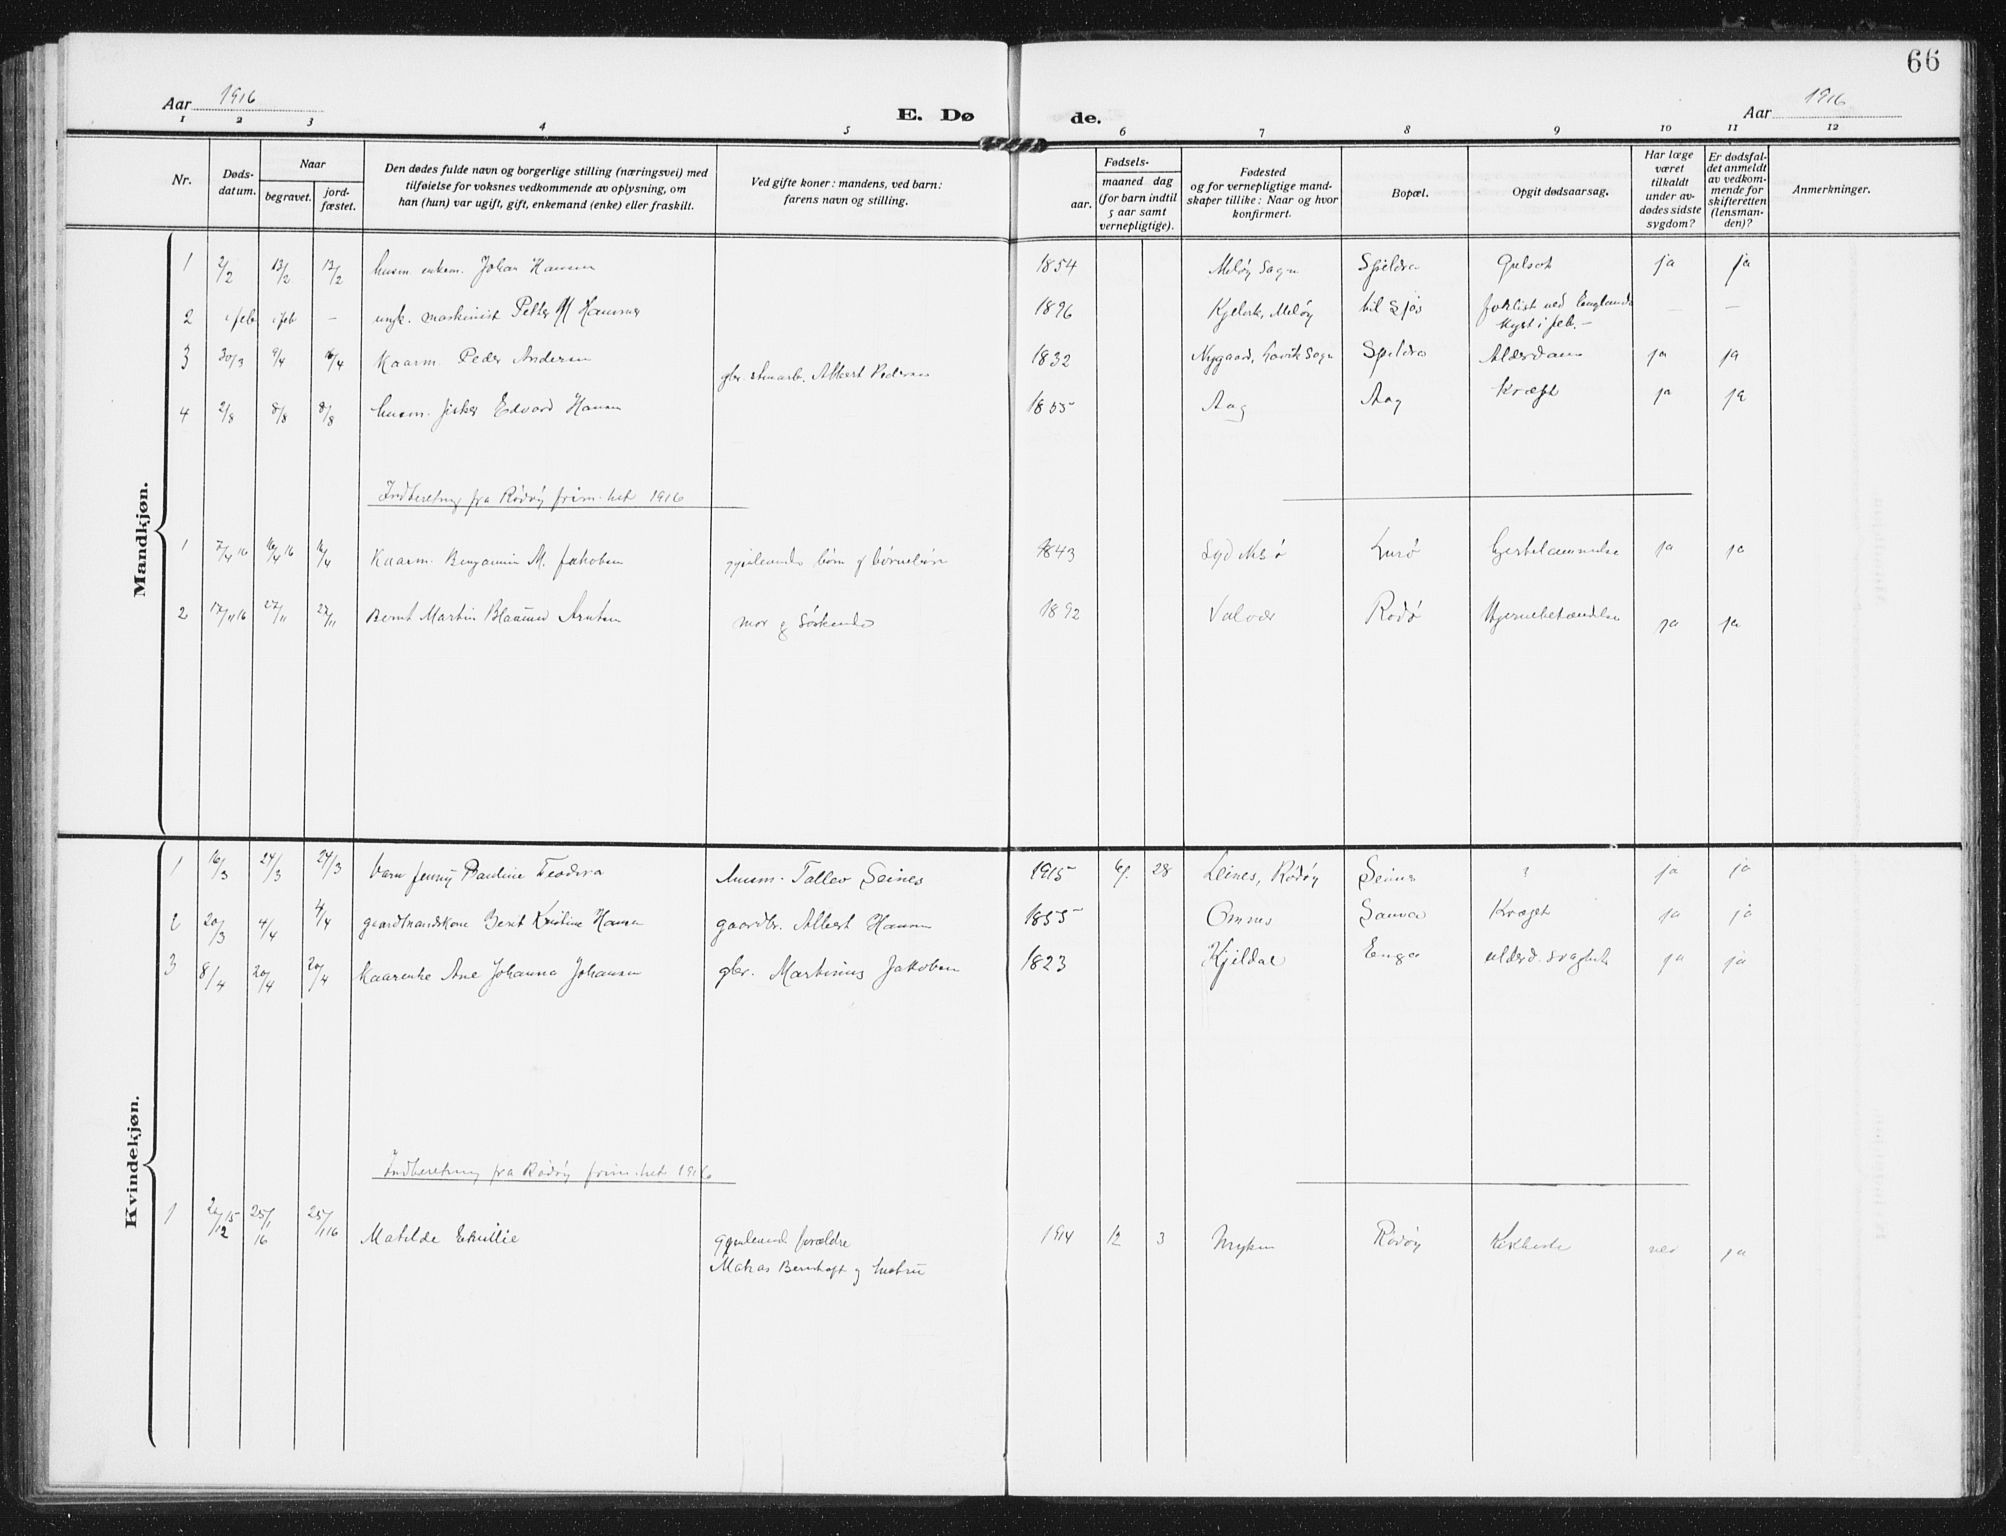 66
Aar 1916
E. Dø
de.
Aar 1916
1 2 3 4 5 6 7 8 9 10 11 12
Nr.
Døds-
datum.
Naar
begravet.
jord-
fæstet.
Den dødes fulde navn og borgerlige stilling (næringsvei) med
tilføielse for voksnes vedkommende av oplysning, om
han (hun) var ugift, gift, enkemand (enke) eller fraskilt.
Ved gifte koner: mandens, ved barn:
farens navn og stilling.
Fødsels-
aar.
maaned dag
(for barn indtil
5 aar samt
vernepligtige).
Fødested
og for vernepligtige mand-
skaper tillike: Naar og hvor
konfirmert.
Bopæl.
Opgit dødsaarsag.
Har læge
været
tilkaldt
under av-
dødes sidste
sygdom?
Er dødsfal-
det anmeldt
av vedkom-
mende for
skifteretten
(lensman-
den)?
Anmerkninger.
Mandkjøn.
1 2/2 13/2 13/2 husm. enkem. Johan Hansen 1854 Meløy Sogn Gulsot ja ja
2 i feb. i feb — ungk. maskinist Petter M Hansen 1896 Meløy til sjøs forlist ved Englands — —
kyst i feb. —
3 30/3 9/4 Kaarm. Peder Andersen 1832 Nygaard, Sogn ja ja
gbr. Albert Pedersen
4 2/8 8/8 8/8 husm. fisker Edvard Hansen 1855 Aag Aag Kræft ja ja
Indberetning fra Rødøy frim.het 1916
1 7/4 16 16/4 16 16/4 Kaarm. Benjamin M. Jakobsen gjenlevende børn og børnebørn 1843 Lurø Hjertelammelse ja ja
2 17/11 16 27/11 27/11 Bernt Martin Arntsen mor og søskende 1892 Valvær Rødø Hjernebetændelse ja ja
Kvindekjøn.
1 16/3 24/3 24/3 barn Jenny Pauline Teodora husm. Tollev Seines 1915 6 28 Leines, Rødøy Seines ? ja ja
2 20/3 4/4 4/4 gaardmandskone Beret Kristine Hansen gaardbr. Albert Hansen 1855 Omnes Kræft ja ja
3 8/4 20/4 20/4 Kaarenke Ane Johanna Johansen gbr. Martinius Jakobsen 1823 Kjeldal Enga alderd. svaghet ja ja
Indberetning fra Rødøy frim.het 1916
1 25/1 16 25/1 16 Matilde gjenlevende forældre 1914 12 3 Myken Rødøy Kikhoste nei ja
og hustru